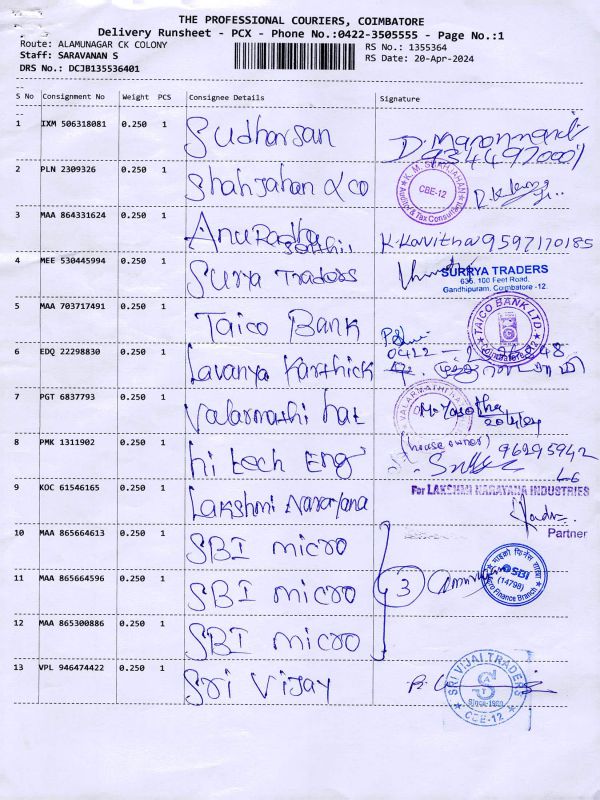 THE PROFESSIONAL COURIERS, COIMBATORE
Delivery Runsheet - PCX - Phone No.:0422-3505555 - Page No.:1
Route: ALAMUNAGAR CK COLONY
Staff: SARAVANAN S
DRS No.: DCJB135536401
RS No.: 1355364
RS Date: 20-Apr-2024
S No Consignment No Weight PCS Consignee Details Signature
1 IXM 506318081 0.250 1 Sudharsan
2 PLN 2309326 0.250 1 Shahjahan & co
K.M. SHAHJAHAN
CBE-12
Auditor & Tax Consultant
3 MAA 864331624 0.250 1 Anuradha K.Kavitha 9597170185
4 MEE 530445994 0.250 1 Surya Traders
SURRYA TRADERS
635, 100 Feet Road,
Gandhipuram, Coimbatore -12.
5 MAA 703717491 0.250 1 Taico Bank
TAICO BANK LTD.
Coimbatore-12
6 EDQ 22298830 0.250 1 Lavanya Karthick
7 PGT 6837793 0.250 1 Valarmathi hat
8 PMK 1311902 0.250 1 hi tech Eng (house owner) 96295942
9 KOC 61546165 0.250 1 Lakshmi Narayana
For LAKSHMI NARAYANA INDUSTRIES
Partner
10 MAA 865664613 0.250 1 SBI micro
11 MAA 865664596 0.250 1 SBI micro 3
SBI
(14798)
Micro Finance Branch
12 MAA 865300886 0.250 1 SBI micro
13 VPL 946474422 0.250 1 Sri Vijay
SRI VIJAI TRADERS
CBE-12